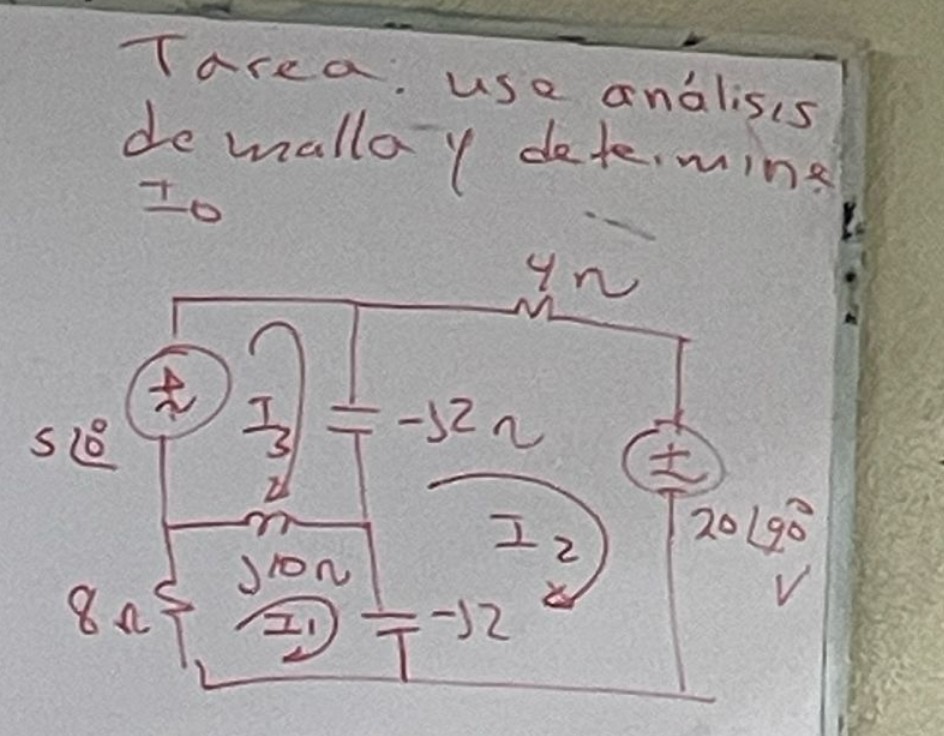 Tarea: use análisis
de malla y determine
Io
4Ω
5∠0°
I3
-j2Ω
I2
20∠90°
V
j10Ω
8Ω
I1
-j2